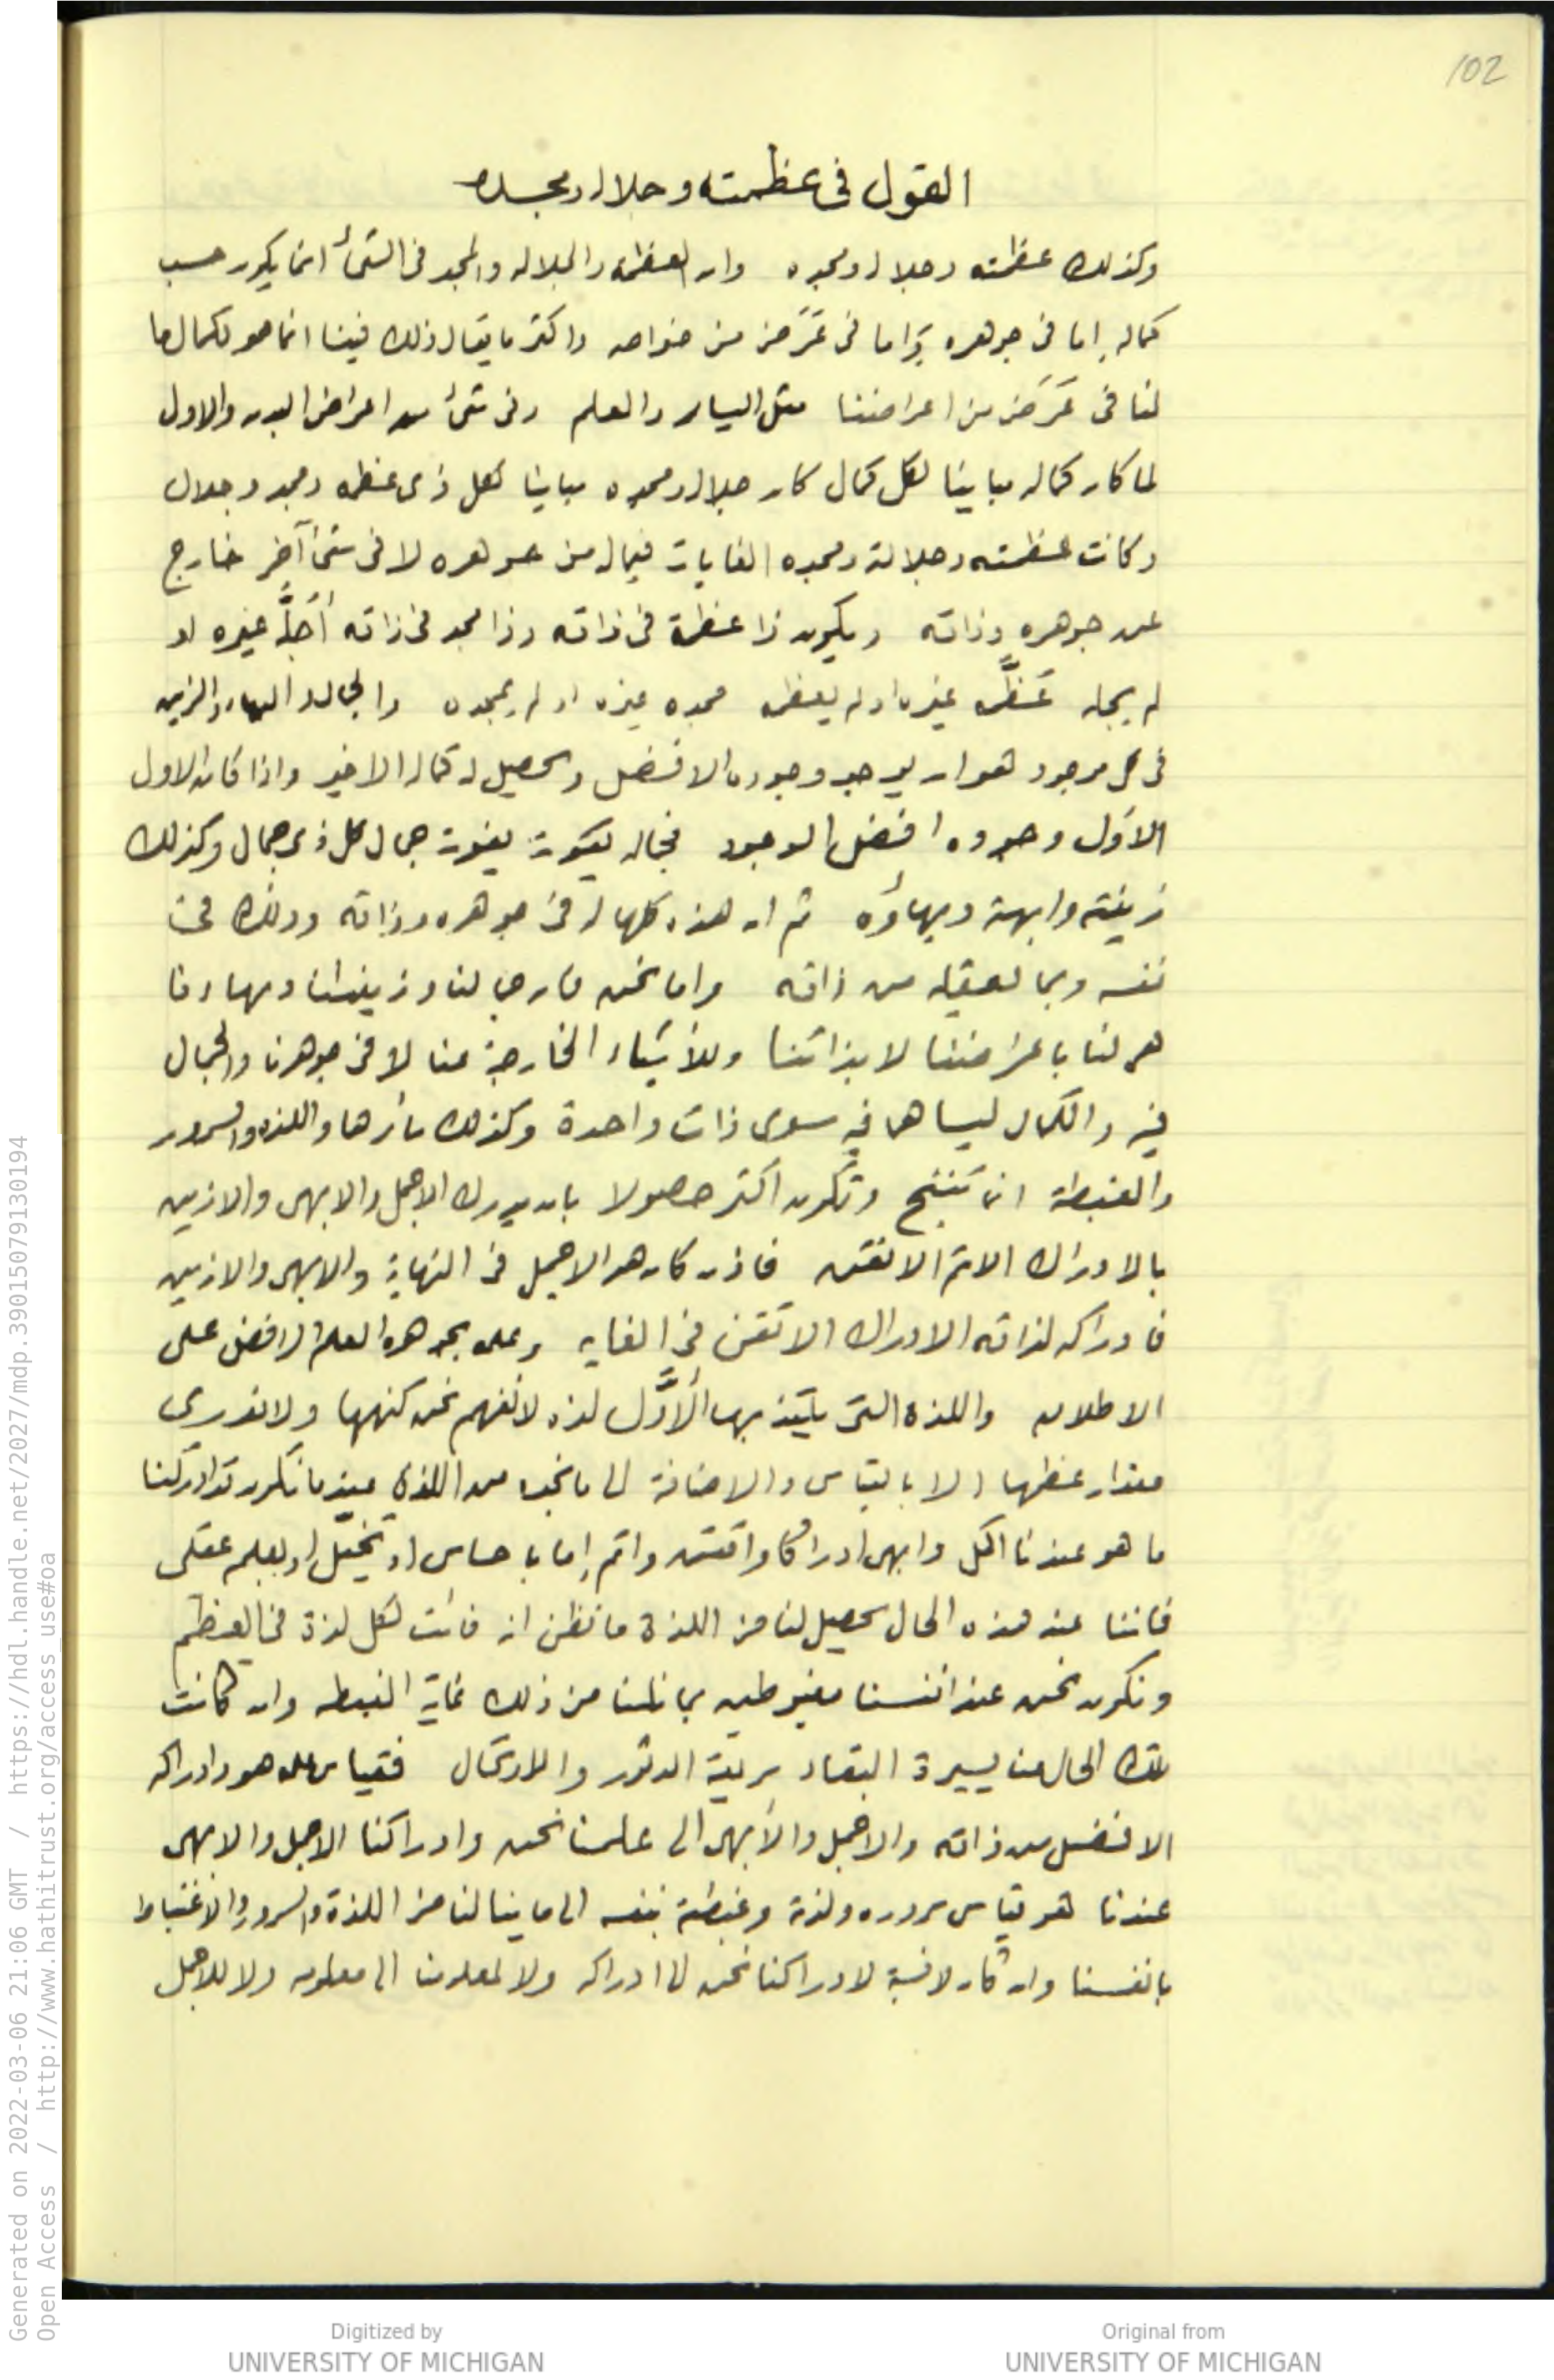 102
القول فى عظمته وجلاله ومجده
وكذلك عظمته وجلاله ومجده وان العظمة والجلالة والمجد فى الشئ انما يكون حسب
كماله اما فى جوهره وإما فى عَرَض من خواصه واكثر ما يقال ذلك فينا انما هو لكمال ما
لنا فى عَرَض من اعراضنا مثل اليسار والعلم وفى شئ من اعراض البدن والاول
لما كان كماله مباينا لكل كمال كان جلاله ومجده مباينا لكل ذى عظمة ومجد وجلال
وكانت عظمته وجلالته ومجده الغايات فيما له من جوهره لا فى شئ آخر خارج
عن جوهره وذاته ويكون ذا عظمة فى ذاته وذا مجد فى ذاته أجلّه غيره او
لم يجله عَظَّمه غيره او لم يعظمه مجده غيره او لم يمجده والجمال والبهاء والزين
فى كل موجود هو ان يوجد وجوده الافضل ويحصل له كماله الاخير واذا كان الاول
الاوّل وجوده افضل الوجود فجماله يفوت جمال كل ذى جمال وكذلك
زينته وابهته وبهاؤه ثم ان هذه كلها له فى جوهره وذاته وذلك فى
نفسه وبما يعقله من ذاته واما نحن فان جمالنا وزينتنا وبهاءنا
هى لنا باعراضنا لا بذاتنا وللأشياء الخارجة عنا لا فى جوهرنا والجمال
فيه والكمال ليسا هما فيه سوى ذات واحدة وكذلك سائرها واللذة والسرور
والغبطة انما تنتج وتكون اكثر حصولا بان يدرك الاجمل والابهى والازين
بالادراك الاتم الاتقن فاذن كان هو الاجمل فى النهاية والابهى والازين
فادراكه لذاته الادراك الاتقن فى الغايه وعلمه بجوهره العلم الافضل على
الاطلاق واللذة التى يلتذ بها الأوَّل لذة لا نفهم نحن كنهها ولا ندرى
مقدار عظمها الا بالقياس والاضافة الى ما نجد من اللذة عندما نكون قد ادركنا
ما هو عندنا اكمل وابهى ادراكا واتقن واتم إما باحساس او تخيّل او بعلم عقلى
فاننا عند هذه الحال يحصل لنا من اللذة ما نظن انه فائت لكل لذة فى العظم
ونكون نحن عند انفسنا مغبوطين بما نلنا من ذلك غاية الغبطه وان كانت
تلك الحال منا يسيرة البقاء سريعة الدثور والارتحال فقياس علمه هو وادراكه
الافضل من ذاته والاجمل والأبهى الى علمنا نحن وادراكنا الاجمل والابهى
عندنا هو قياس سروره ولذته وغبطته بنفسه الى ما ينالنا من اللذة والسرور والاغتباط
بانفسنا وان كان لا نسبة لادراكنا نحن الى ادراكه ولا لمعلومنا الى معلومه ولا للاجمل
Generated on 2022-03-06 21:06 GMT / https://hdl.handle.net/2027/mdp.39015079130194
Open Access / http://www.hathitrust.org/access_use#oa
Digitized by
UNIVERSITY OF MICHIGAN
Original from
UNIVERSITY OF MICHIGAN